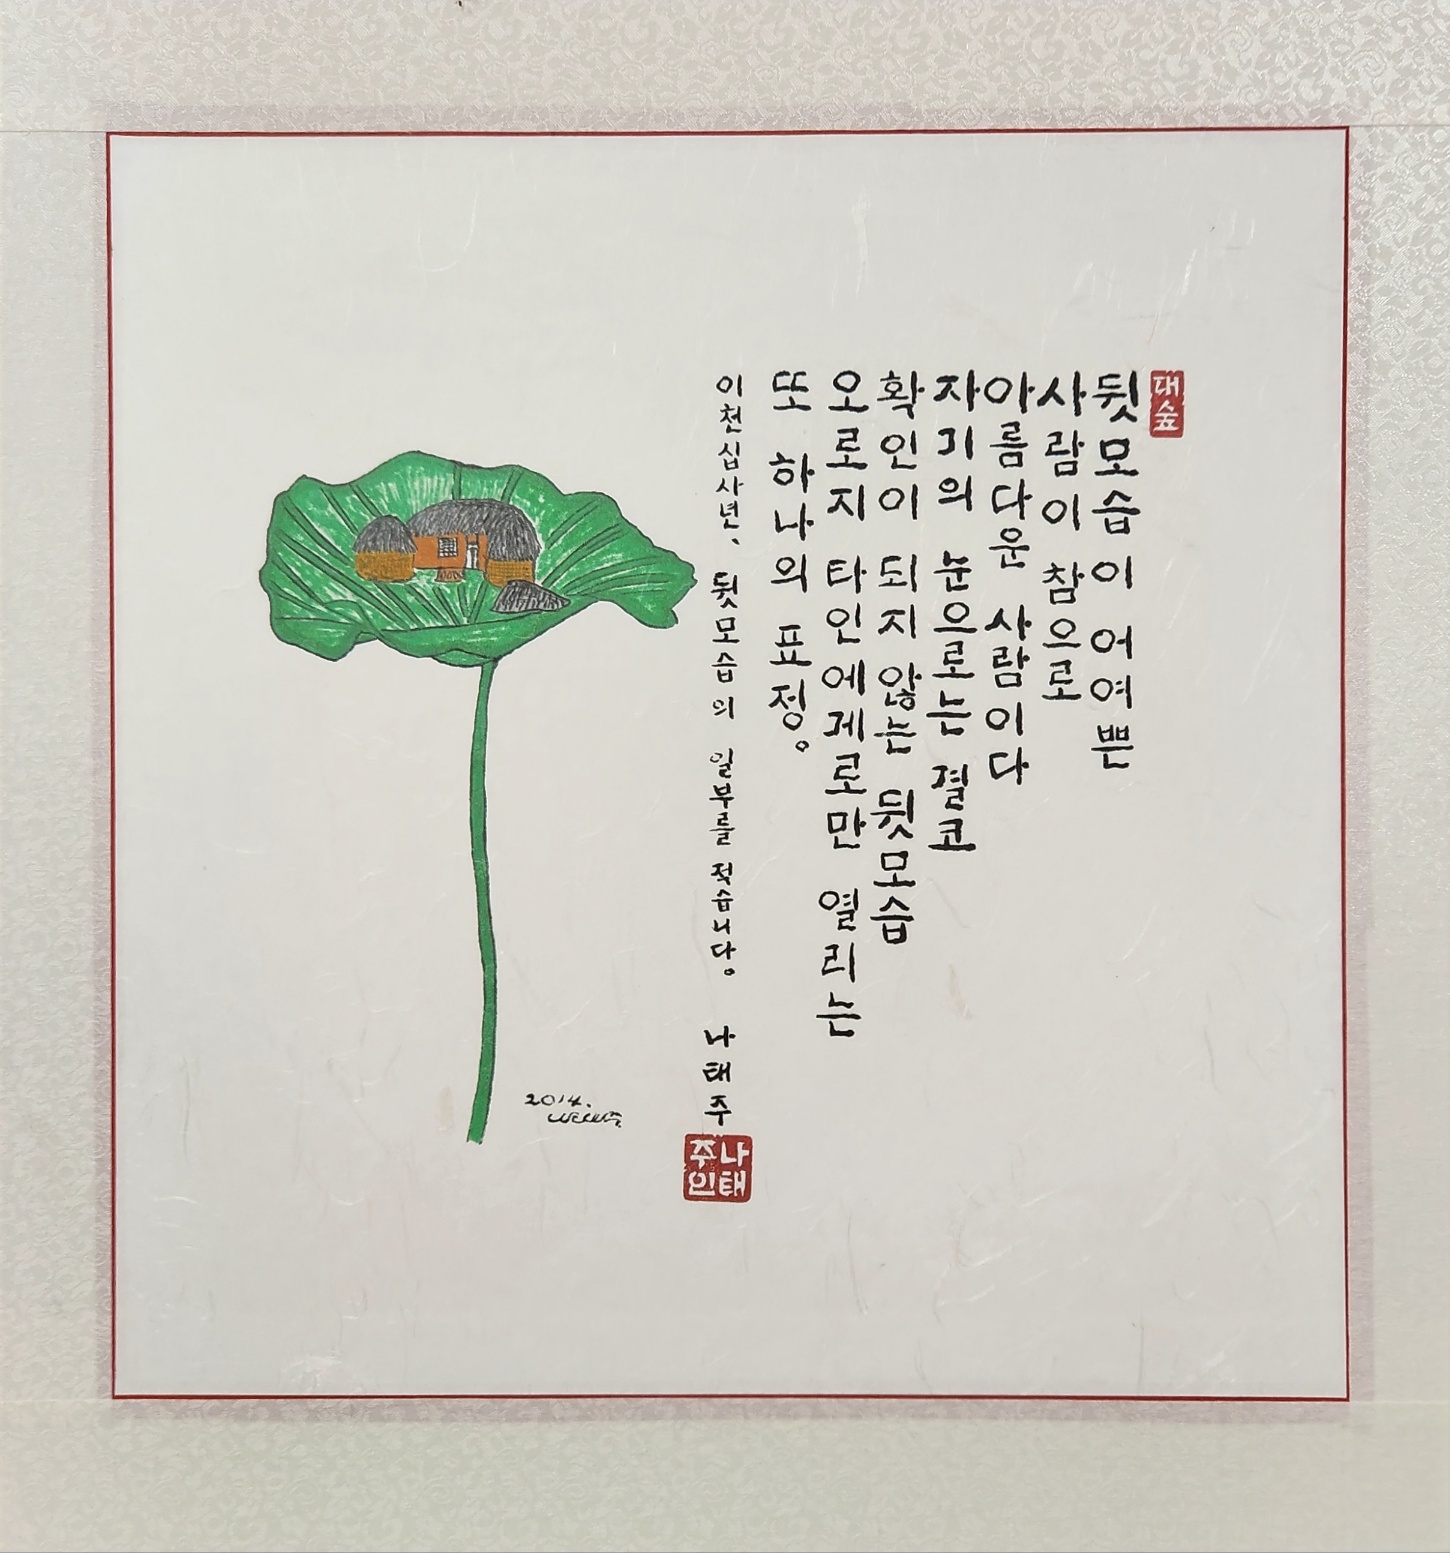 대숲
뒷모습이 어여쁜
사람이 참으로
아름다운 사람이다
자기의 눈으로는 결코
확인이 되지 않는 뒷모습
오로지 타인에게로만 열리는
또 하나의 표정。
이천십사년、 뒷모습의 일부를 적습니다。 나태주
나태
주인
2014.